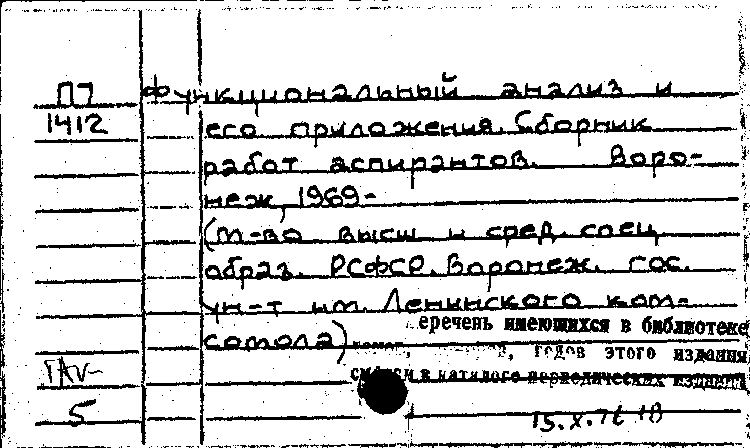 П7 Функциональный анализ и
1412 его приложения. Сборник
работ аспирантов. Воро-
неж, 1969-
(М-во высш и сред. спец
образ. РСФСР. Воронеж. гос.
ун-т им. Ленинского ком-
сомола)
еречень имеющихся в библиотеке
годов этого издания
в каталоге периодических изданий
5
15.X.76